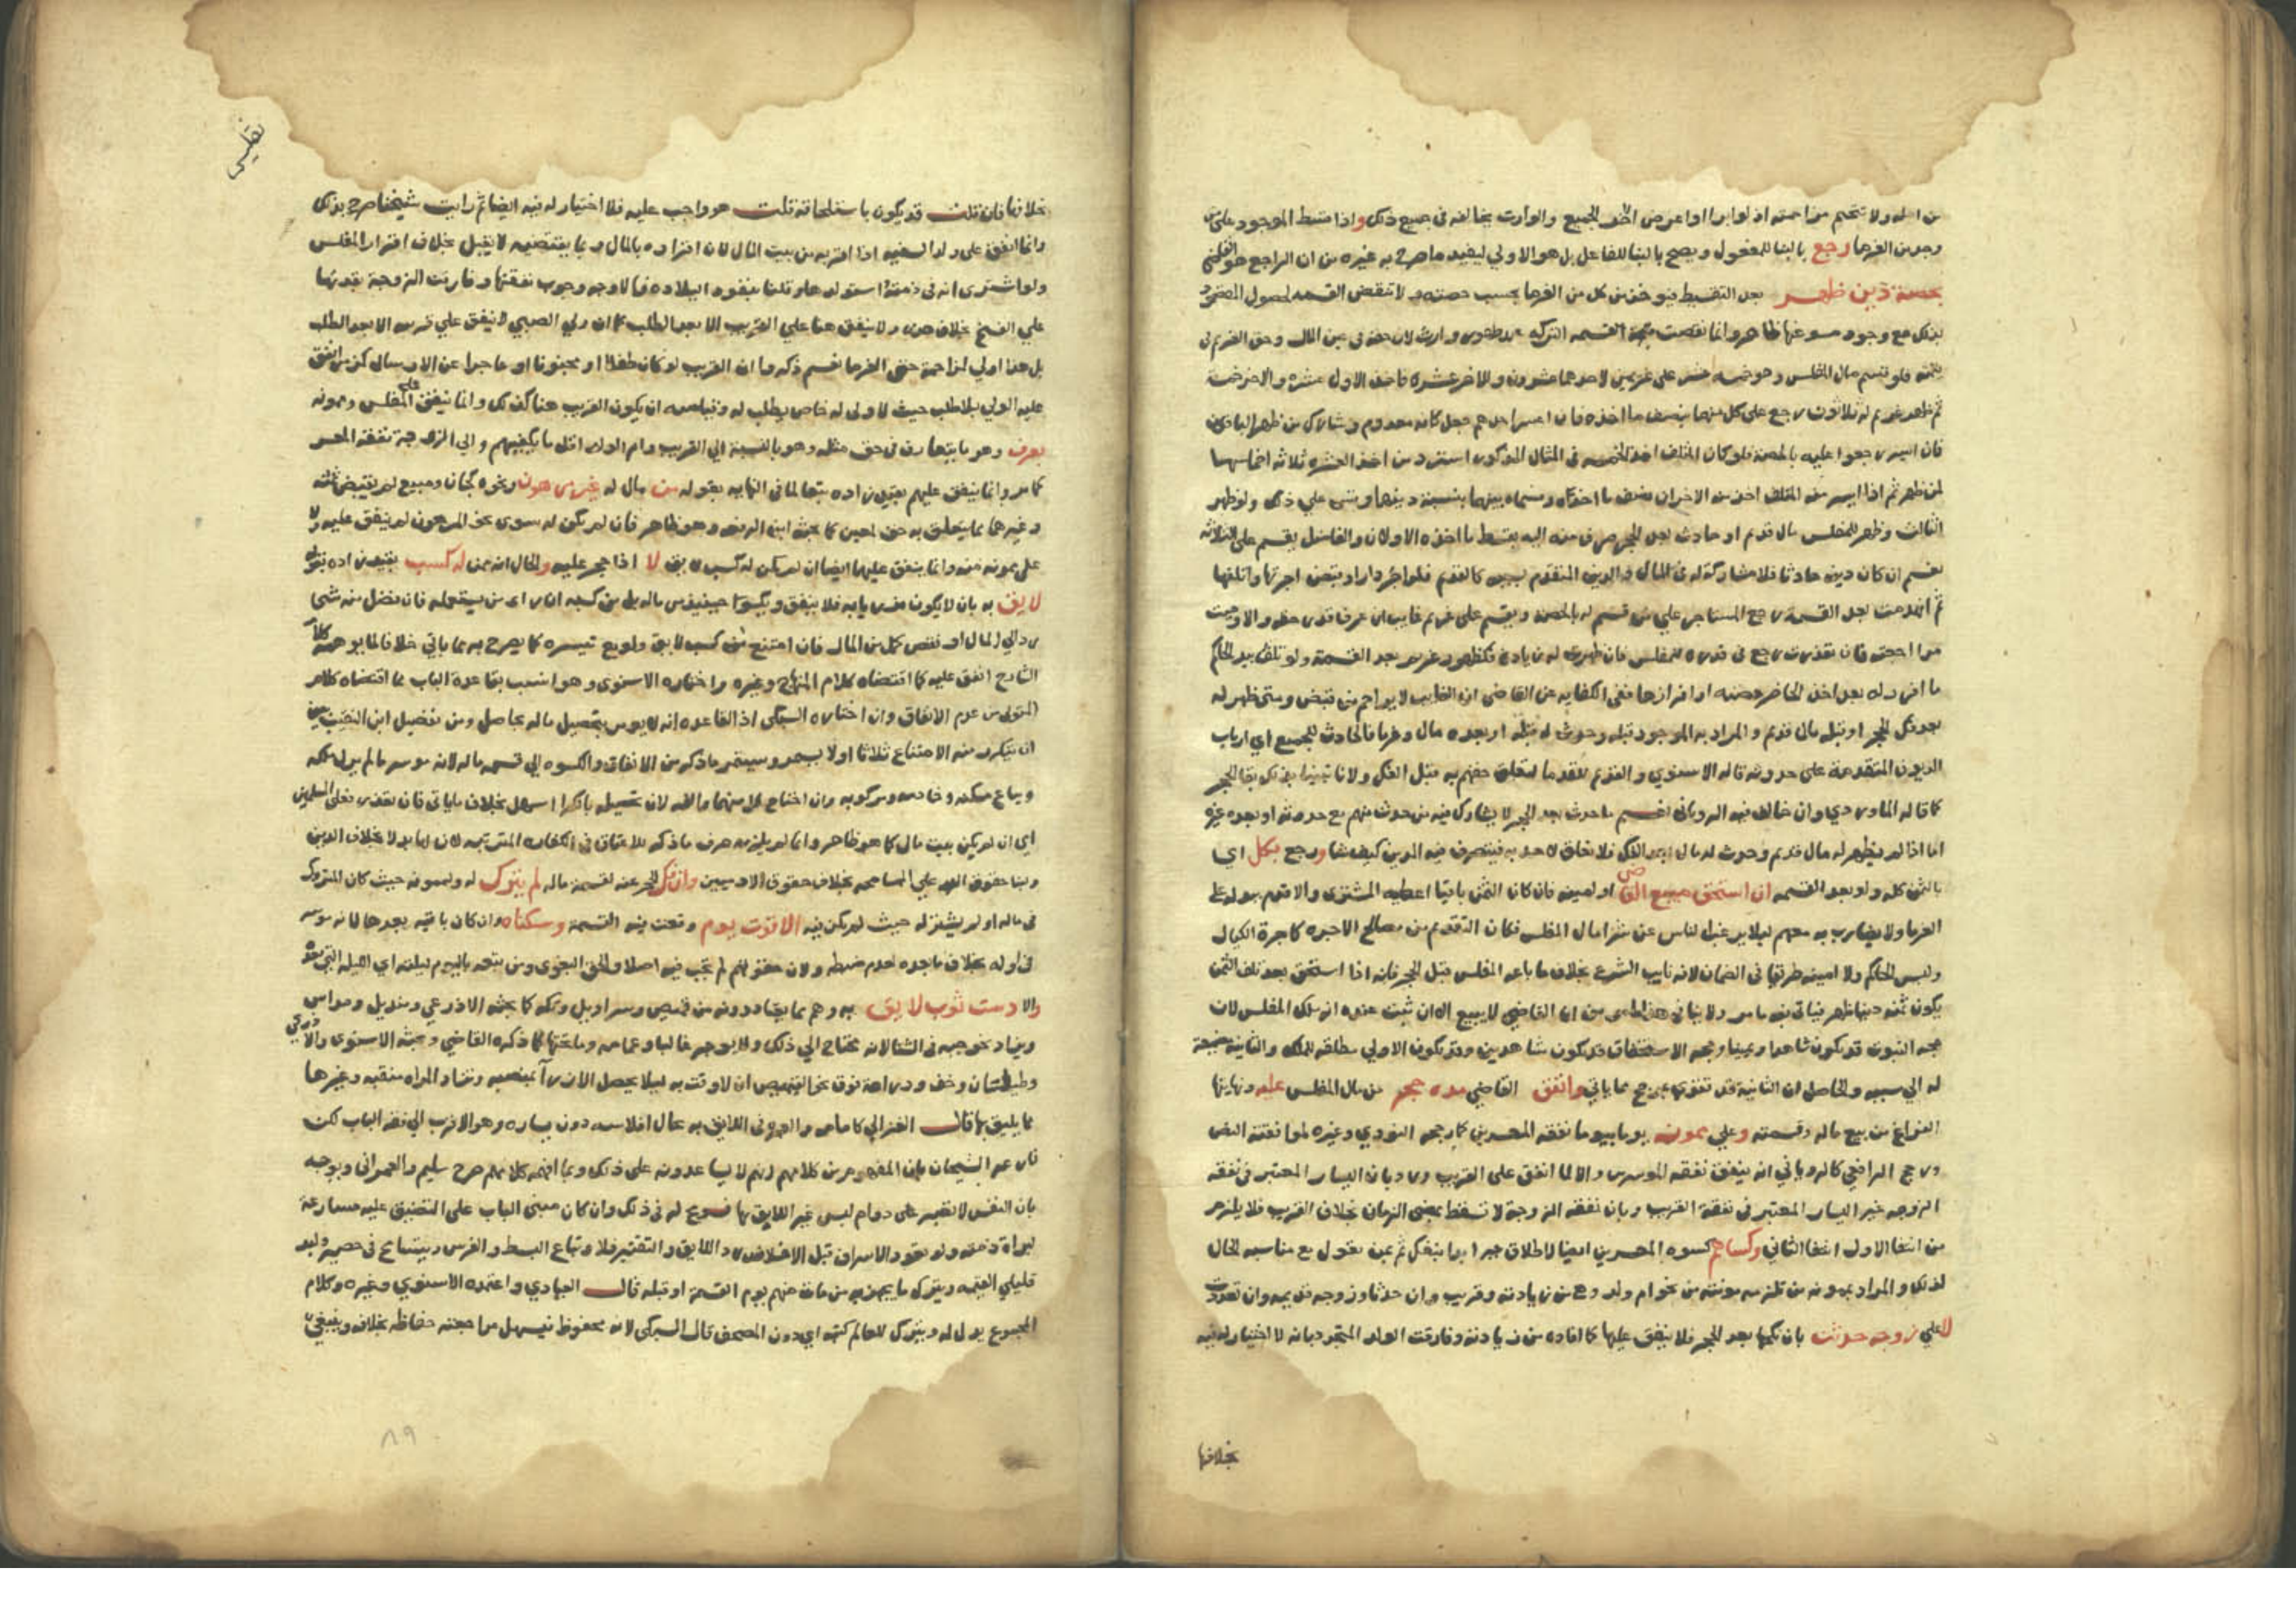 من اصله ولا تتحتم مزاحمته اذ لو ابرا او اعرض اخذ الجميع والوارث يخالفه في جميع ذلك واذا قسط الموجود على من
وجد من الغرما رجع بالبنا للمفعول ويصح بالبنا للفاعل بل هو الاولي ليفيد ما صرح به غيره من ان الراجع هو
بحصة دين ظهر بعد التقسيط فيوخذ من كل من الغرما بحسب حصته ولا تنقض القسمة لحصول المقصود
بذلك مع وجود مسوغها ظاهرا وانما نقضت قسمة التركه بظهور وارث لان حقه في عين المال وحق الغريم في
قيمته فلو قسم مال المفلس وهو خمسة عشر على غريمين لاحدهما عشرون وللاخر عشره فاخذ الاول عشره والاخر خمسه
ثم ظهر غريم له ثلاثون رجع على كل منهما بنصف ما اخذه فان اعسر احدهم جعل كانه معدوم وشارك من ظهر الباقين
فان ايسر رجعوا عليه بالحصة فلو كان المتلف اخذ الخمسه في المثال المذكور استرد من اخذ العشره ثلاثة اخماسها
لمن ظهر ثم اذا ايسر المتلف اخذ منه الاخران نصف ما اخذه وقسماه بينهما بنسبة دينهما وقس على ذلك ولو ظهر
الثالث وظهر للمفلس مال قديم او حادث بعد الحجر صرف منه اليه بقسط ما اخذه الاولان والفاضل يقسم على الثلاثه
نعم ان كان دينه حادثا فلا مشاركة له في المال والدين المتقدم سببه كالقديم فلو اجر دارا وقبض اجرتها واتلفها
ثم انهدمت بعد القسمة رجع المستاجر علي من قسم له بالحصة ويقسم على غريم غايب ان عرف قدر حقه والا وجبت
مراجعته فان تعذرت رجع في قدره للمفلس فان ظهرت له زيادة فكظهور غريم بعد القسمة ولو تلف بيد الحاكم
ما افرد له بعد اخذ الحاضر حصته او افرازها ففي الكفايه عن القاضي ان الغايب لا يزاحم من قبض ومتى ظهر له
بعد فك الحجر او قبله مال قديم والمراد به الموجود قبله وحدث له قبله او بعده مال وغرما فالحادث للجميع اي ارباب
الديون المتقدمة على حدوثه قاله الاسنوي والقديم للقدما لتعلق حقهم به قبل الفك ولانا تبينا بذلك بقا الحجر
كما قاله الماوردي وان خالف فيه الروياني نعم ما حدث بعد الحجر لا يشارك فيه من حدث منهم مع حدوثه او بعده غيره
اما اذا لم يظهر له مال قديم وحدث له مال بعد الفك فلا تعلق لاحد به فيتصرف فيه المدين كيف شا ورجع بكل اي
بالثمن كله ولو بعد القسمه ان استحق مبيع القاضي او امينه فان كان الثمن باقيا اعطيه المشتري والا قدم ببدله على
الغرما ولا يضارب به معهم ليلا يرغب الناس عن شرا مال المفلس فكان التقديم من مصالح الحجر كاجرة الكيال
وليس الحاكم ولا امينه طريقا في الضمان لانه نايب الشرع بخلاف ما باعه المفلس قبل الحجر فانه اذا استحق بعد تلف الثمن
يكون ثمنه دينا ظهر فياتي فيه ما مر ولا ينافي هذا ما مر من ان القاضي لا يبيع الا ان ثبت عنده انه ملك المفلس لان
حجه الثبوت قد تكون شاهدا ويمينا وحجه الاستحقاق قد تكون شاهدين وقد تكون الاولي مطلقه للملك والثانيه مضيفة
له الي سببه والحاصل ان الثانية قد تفوقها بمرجح مما ياتي وانفق القاضي مدة حجر من مال المفلس عليه ونهايتها
الفراغ من بيع ماله وقسمته وعلى ممونه يوما بيوم نفقة المعسرين كما رجحه النووي وغيره لموافقته النص
ورجح الرافعي كالروياني انه ينفق نفقة الموسرين والا لما انفق على القريب ورد بان اليسار المعتبر في نفقه
الزوجه غير اليسار المعتبر في نفقة القريب وبان نفقة الزوجة لا تسقط بمضي الزمان بخلاف القريب فلا يلزم
من انتفا الاول انتفا الثاني وكساهم كسوه المعسرين ايضا
لذلك والمراد بممونه من تلزمه مونته من نحو ام ولد وهي من زيادته وقريب وان حدثا وزوجة قديمه وان تعددت
لا على زوجه حدثت بان نكحها بعد الحجر فلا ينفق عليها كما افاده من زيادته وفارقت الولد المتجدد بانه لا اختيار له فيه
بخلافها
تفليس
بخلافها فان قلت قد يكون باستلحاقه قلت هو واجب عليه فلا اختيار له فيه ايضا ثم رايت شيخنا صرح بذلك
وانما انفق على ولد السفيه اذا اقر به من بيت المال لان اقراره بالمال وبما يقتضيه لا يقبل بخلاف اقرار المفلس
ولو اشترى امة في ذمته واستولدها وقلنا بنفوذ ايلاده فالاوجه وجوب نفقتها وفارقت الزوجة بقدرتها
علي الفسخ بخلاف هذه ولا ينفق هنا علي القريب الا بعد الطلب كما ان ولي الصبي لا ينفق علي قريبه الا بعد الطلب
بل هذا اولي لمزاحمة حق الغرما نعم ذكروا ان القريب لو كان طفلا او مجنونا او عاجزا عن الارسال كزمن انفق
عليه الولي بلا طلب حيث لا ولي له خاص يطلب له وقياسه ان يكون القريب هنا كذلك وانما ينفق على المفلس وممونه
بعرف وهو ما يتعارف في حق مثله وهو بالنسبة الي القريب وام الولد اقل ما يكفيهم والي الزوجة نفقة المعسر
كما مر وانما ينفق عليهم بقيد زاده تبعا لما في النهايه بقوله من مال له غير مرهون ونحوه كجان ومبيع لم يقبض ثمنه
وغيرهما مما يتعلق به حق لمعين كما بحثه ابن الرفعه وهو ظاهر فان لم يكن له سوى نحو المرهون لم ينفق عليه ولا
على ممونه منه وانما ينفق عليهما ايضا ان لم يكن له كسب لايق لا اذا حجر عليه والحال انه ممن له كسب بقيد زاده بقوله
لايق به بان لا يكون مزريا به فلا ينفق ويكسوا حينيذ من ماله بل من كسبه ان راى من يستعمله فان فضل منه شي
رد الي المال او نقص كمل من المال فان امتنع من كسب لايق ولو مع تيسره كما يصرح به ما ياتي خلافا لما يوهمه كلام
الشارح انفق عليه كما اقتضاه كلام المنهاج وغيره واختاره الاسنوي وهو انسب بقاعدة الباب مما اقتضاه كلام
المتولي من عدم الانفاق وان اختاره السبكي اذ القاعده انه لا يومر بتحصيل ما له بحاصل ومن تفصيل ابن النقيب بين
ان يتكرر منه الامتناع ثلاثا او لا بعد ويستمر ما ذكر من الانفاق والكسوه الي قسمة ماله لانه موسر ما لم يزل ملكه
ويباع مسكنه وخادمه ومركوبه وان احتاج لكل منها لان تحصيله بالكرا اسهل بخلاف ما ياتي فان تعذر فعلى المسلمين
اي ان لم يكن بيت مال كما هو ظاهر وانما لم يلزمه صرف ما ذكر للاعتاق في الكفاره المرتبه لان لها بدلا بخلاف الدين
ولبنا حقوق الله علي المسامحه بخلاف حقوق الادميين وان فك الحجر عنه لقسمة ماله لم يترك له ولممونه حيث كان المتروك
في ماله او لم يشتر له حيث لم يكن فيه الا قوت يوم وقعت فيه القسمة وسكناه وان كان باقيه بعدها لانه موسر
في اوله بخلاف ما بعده لعدم ضبطه ولان حقوقهم لم تجب فيه اصلا والحق البغوي ومن تبعه باليوم ليلته اي الليله التي بعده
والا دست ثوب لايق به وهم مما يعتادونه من قميص وسراويل وتكه كما بحثه الاذرعي ومنديل ومداس
ويزاد نحو جبه في الشتا لانه يحتاج الي ذلك ولا يوجر غالبا وعمامه وما تحتها كما ذكره القاضي وبحثه الاسنوي والاذرعي
وطيلسان وخف ودراعة فوق نحو القميص ان لاقت به ليلا يحصل الازرا بمنصبه وتزاد المراه مقنعه وغيرها
مما يليق بها قال الغزالي كامامه والعبرة في اللايق به بحال افلاسه دون يساره وهو الاقرب الي فقه الباب لكن
نازعه الشيخان بان المفهوم من كلامهم انهم لا يساعدونه على ذلك وبما افهمه كلامهم صرح سليم والعمراني ويوجه
بان النفس لا تصبر على دوام لبس غير اللايق بها فسومح له في ذلك وان كان مبنى الباب على التضييق عليه مسارعة
لبراة ذمته ولو تعود الاسراف قبل الافلاس رد للايق او التقتير فلا وتباع البسط والفرش ويتسامح في حصير ولبد
قليلي القيمه ويترك ما يجهز به من مات منهم يوم القسمة او قبله قال العبادي واعتمده الاسنوي وغيره وكلام
المجموع يدل له ويترك للعالم كتبه اي دون المصحف قال السبكي لانه محفوظ فيسهل مراجعته حفاظه بخلافه وينبغي
٨٩